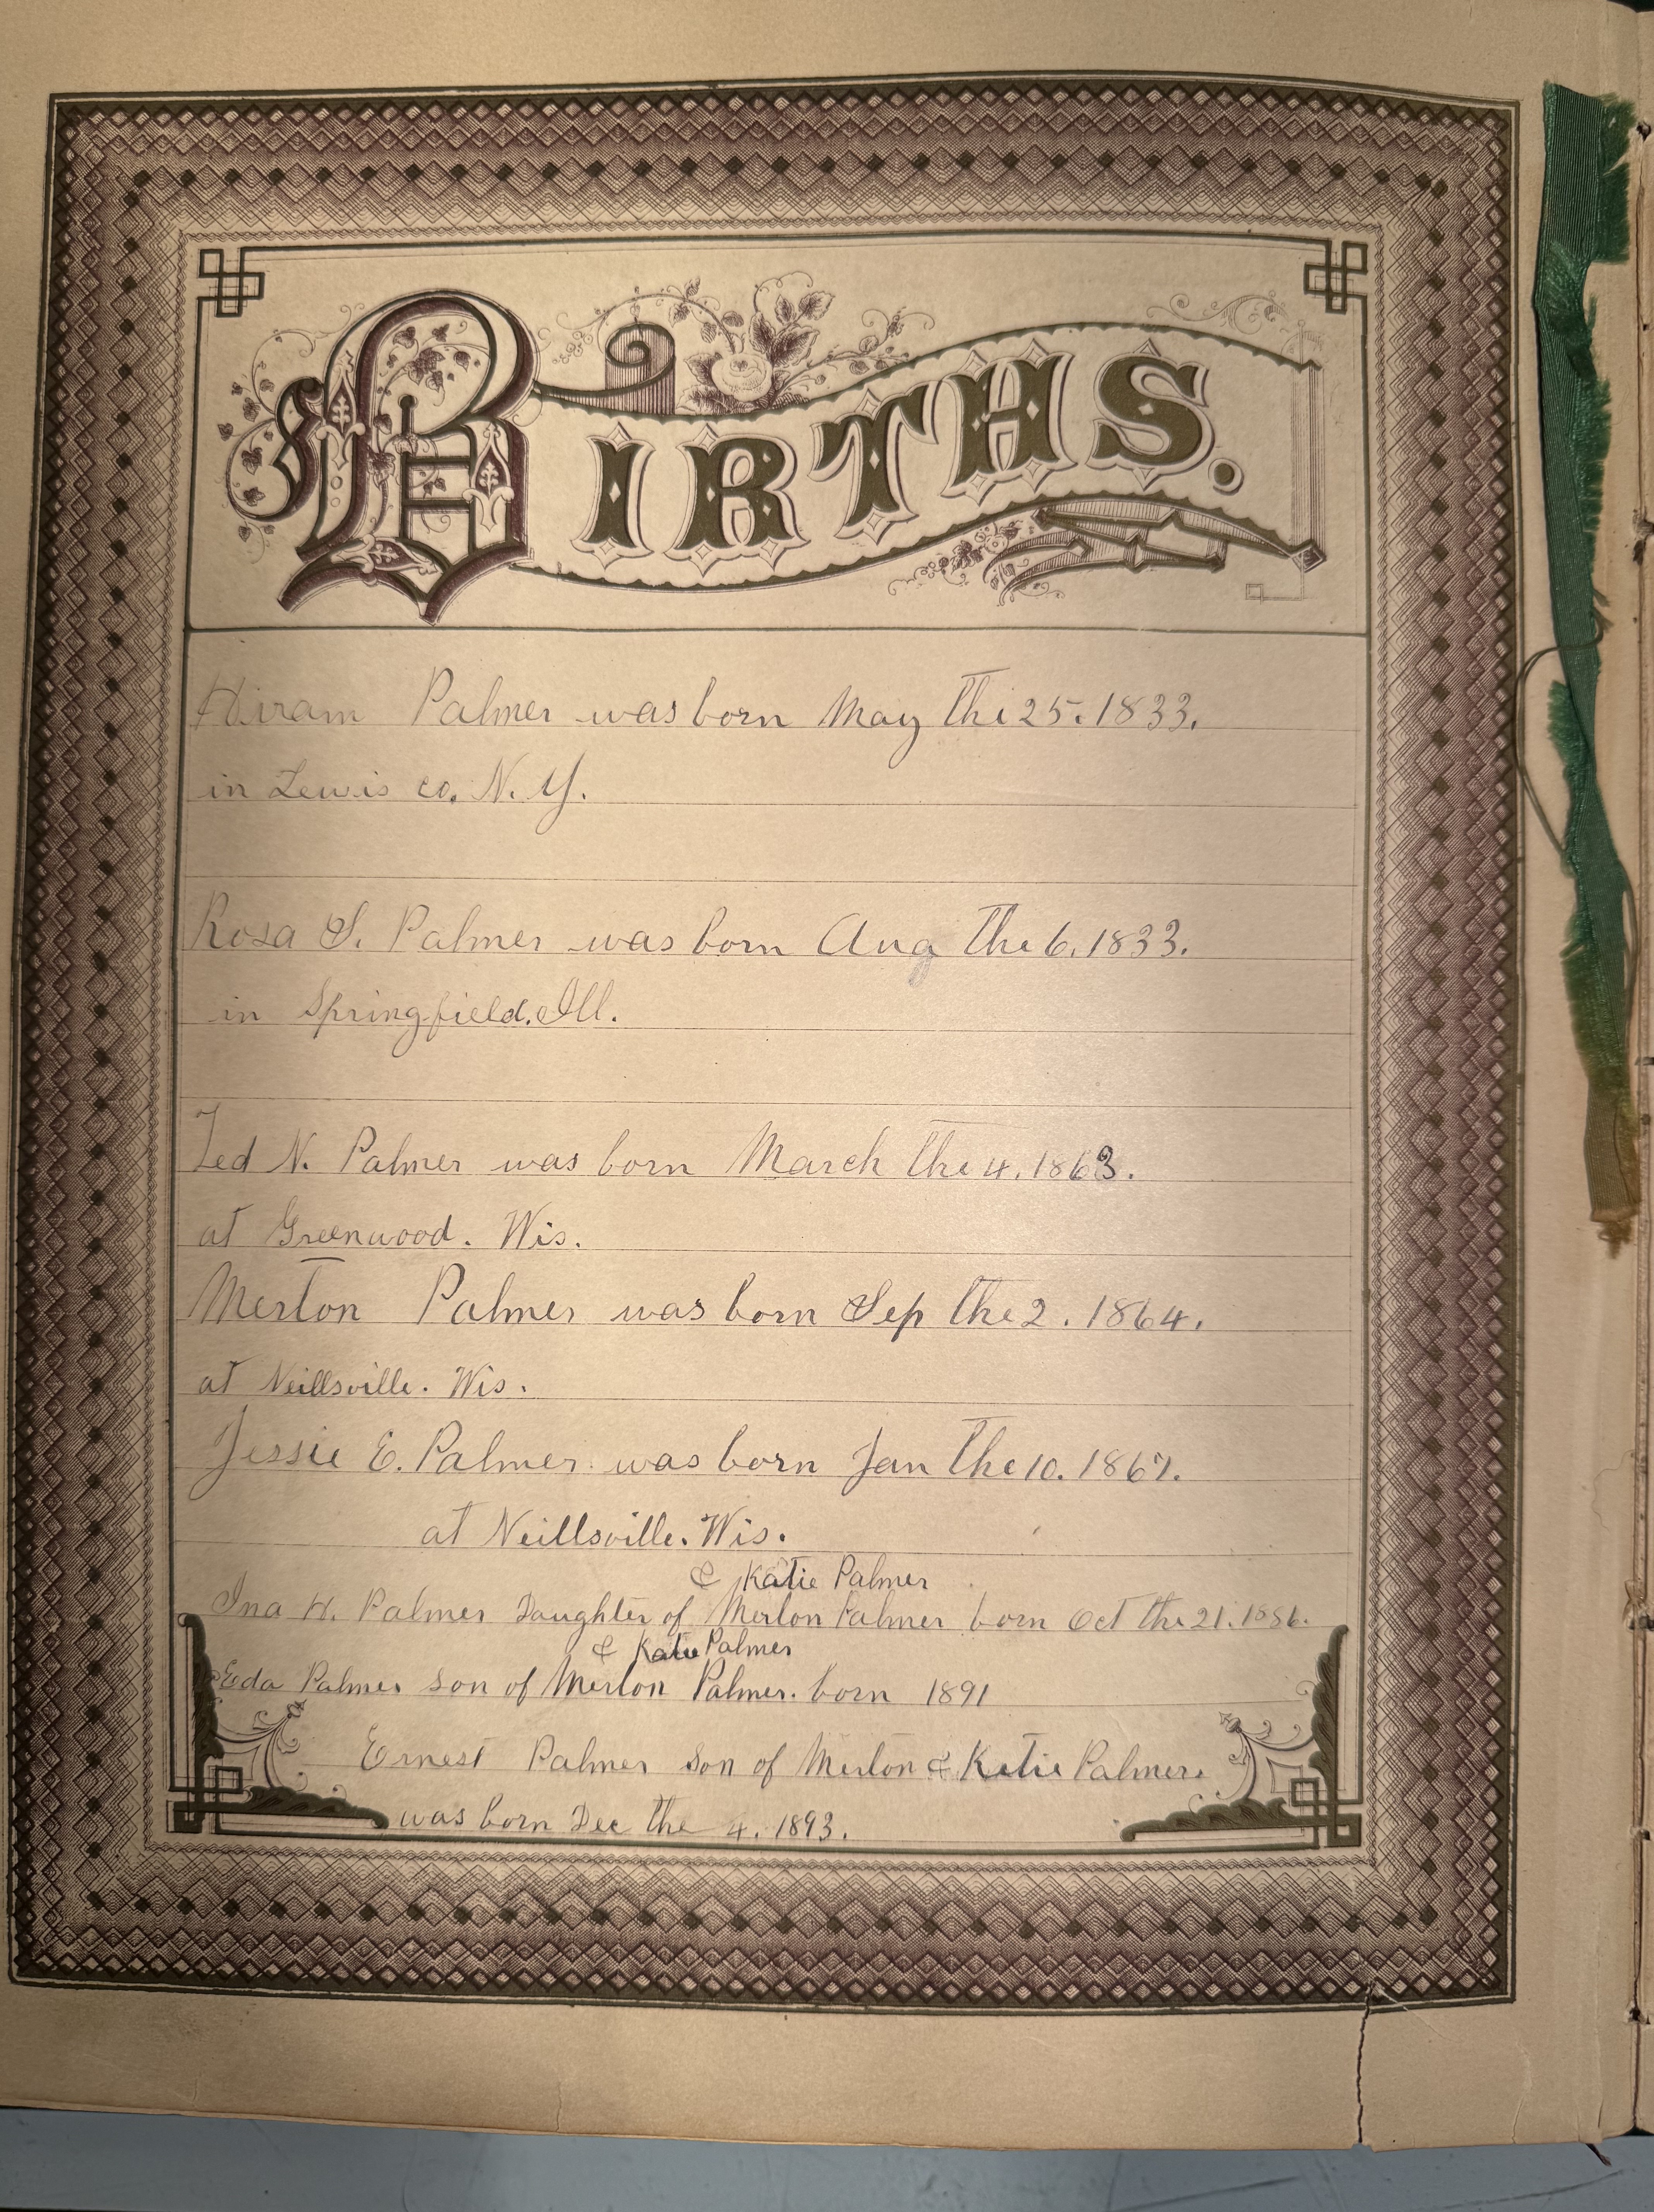 BIRTHS.
Hiram Palmer was born May the 25. 1833.
in Lewis co. N. Y.
Rosa S. Palmer was born Aug the 6. 1833.
in Springfield. Ill.
Ted N. Palmer was born March the 4. 1863.
at Greenwood. Wis.
Merton Palmer was born Sep the 2. 1864.
at Neillsville. Wis.
Jessie E. Palmer was born Jan the 10. 1867.
at Neillsville. Wis.
& Katie Palmer
Ina H. Palmer Daughter of Merton Palmer born Oct the 21. 1886.
& Katie Palmer
Eda Palmer son of Merton Palmer. born 1891
Ernest Palmer son of Merton & Katie Palmer.
was born Dec the 4. 1893.